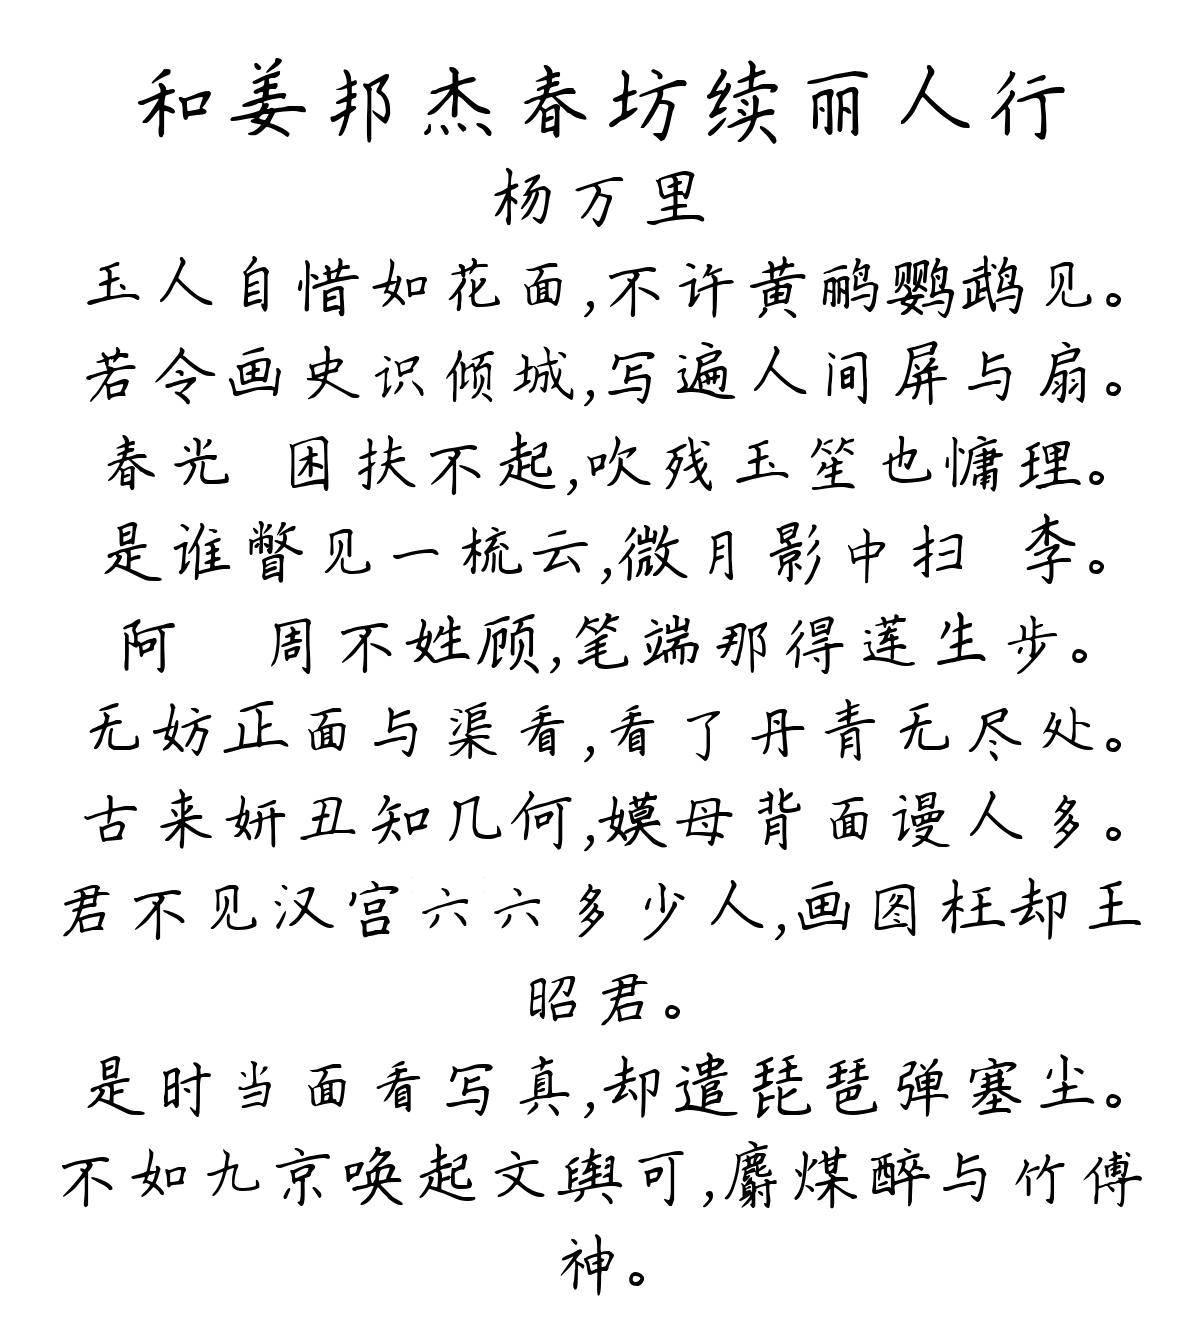 和姜邦杰春坊续丽人行
杨万里
玉人自惜如花面,不许黄鹂鹦鹉见。
若令画史识倾城,写遍人间屏与扇。
春光 困扶不起,吹残玉笙也慵理。
是谁瞥见一梳云,微月影中扫 李。
阿 周不姓顾,笔端那得莲生步。
无妨正面与渠看,看了丹青无尽处。
古来妍丑知几何,嫫母背面谩人多。
君不见汉宫六六多少人,画图枉却王
昭君。
是时当面看写真,却遣琵琶弹塞尘。
不如九京唤起文舆可,麝煤醉与竹傅
神。